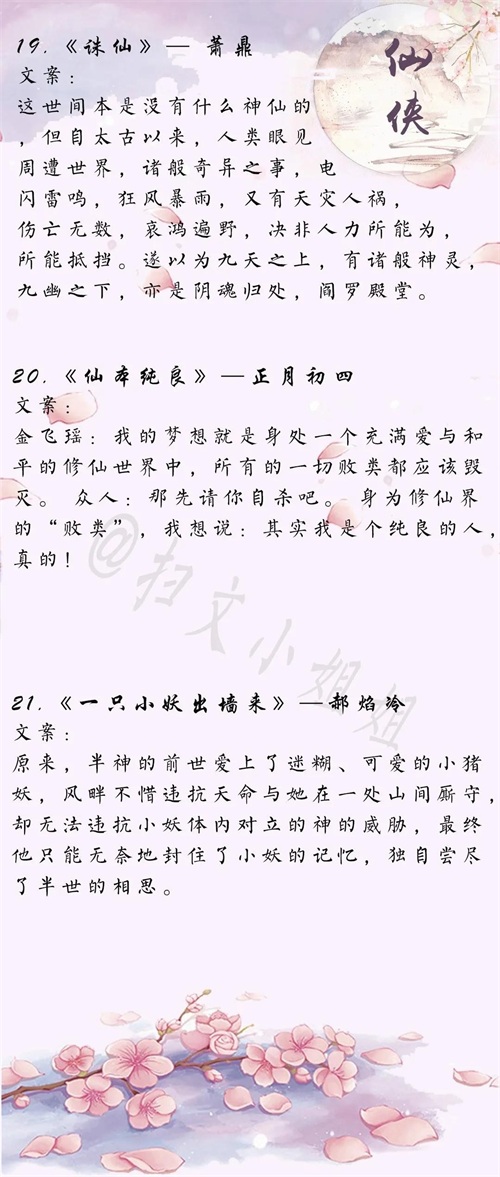 仙侠
19.《诛仙》— 萧鼎
文案：
这世间本是没有什么神仙的
，但自太古以来，人类眼见
周遭世界，诸般奇异之事，电
闪雷鸣，狂风暴雨，又有天灾人祸，
伤亡无数，哀鸿遍野，决非人力所能为，
所能抵挡。遂以为九天之上，有诸般神灵，
九幽之下，亦是阴魂归处，阎罗殿堂。
20.《仙本纯良》—正月初四
文案：
金飞瑶：我的梦想就是身处一个充满爱与和
平的修仙世界中，所有的一切败类都应该毁
灭。 众人：那先请你自杀吧。 身为修仙界
的“败类”，我想说：其实我是个纯良的人，
真的！
@扫文小姐姐
21.《一只小妖出墙来》—郝焰冷
文案：
原来，半神的前世爱上了迷糊、可爱的小猪
妖，风畔不惜违抗天命与她在一处山间厮守，
却无法违抗小妖体内对立的神的威胁，最终
他只能无奈地封住了小妖的记忆，独自尝尽
了半世的相思。